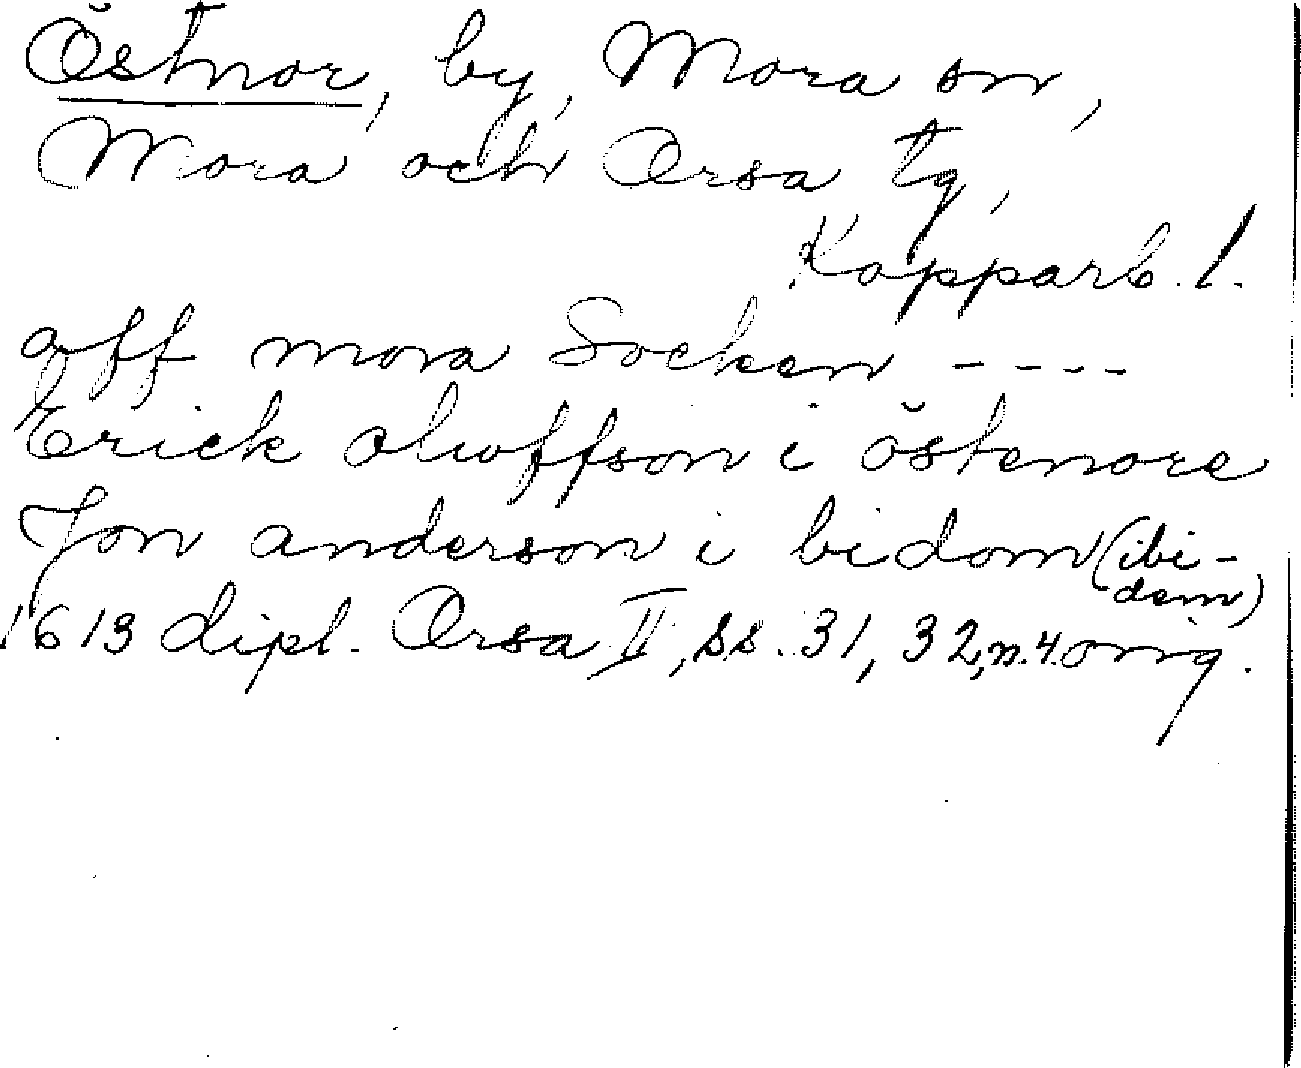 Östnor, by, Mora sn,
Mora och Orsa tg,
Kopparb. l.
aff mora Socken ----
Erick olwffson i östenore
Jon anderson i bidom (ibi-
dem)
1613 dipl. Orsa II, ss. 31, 32, n. 4. orig.